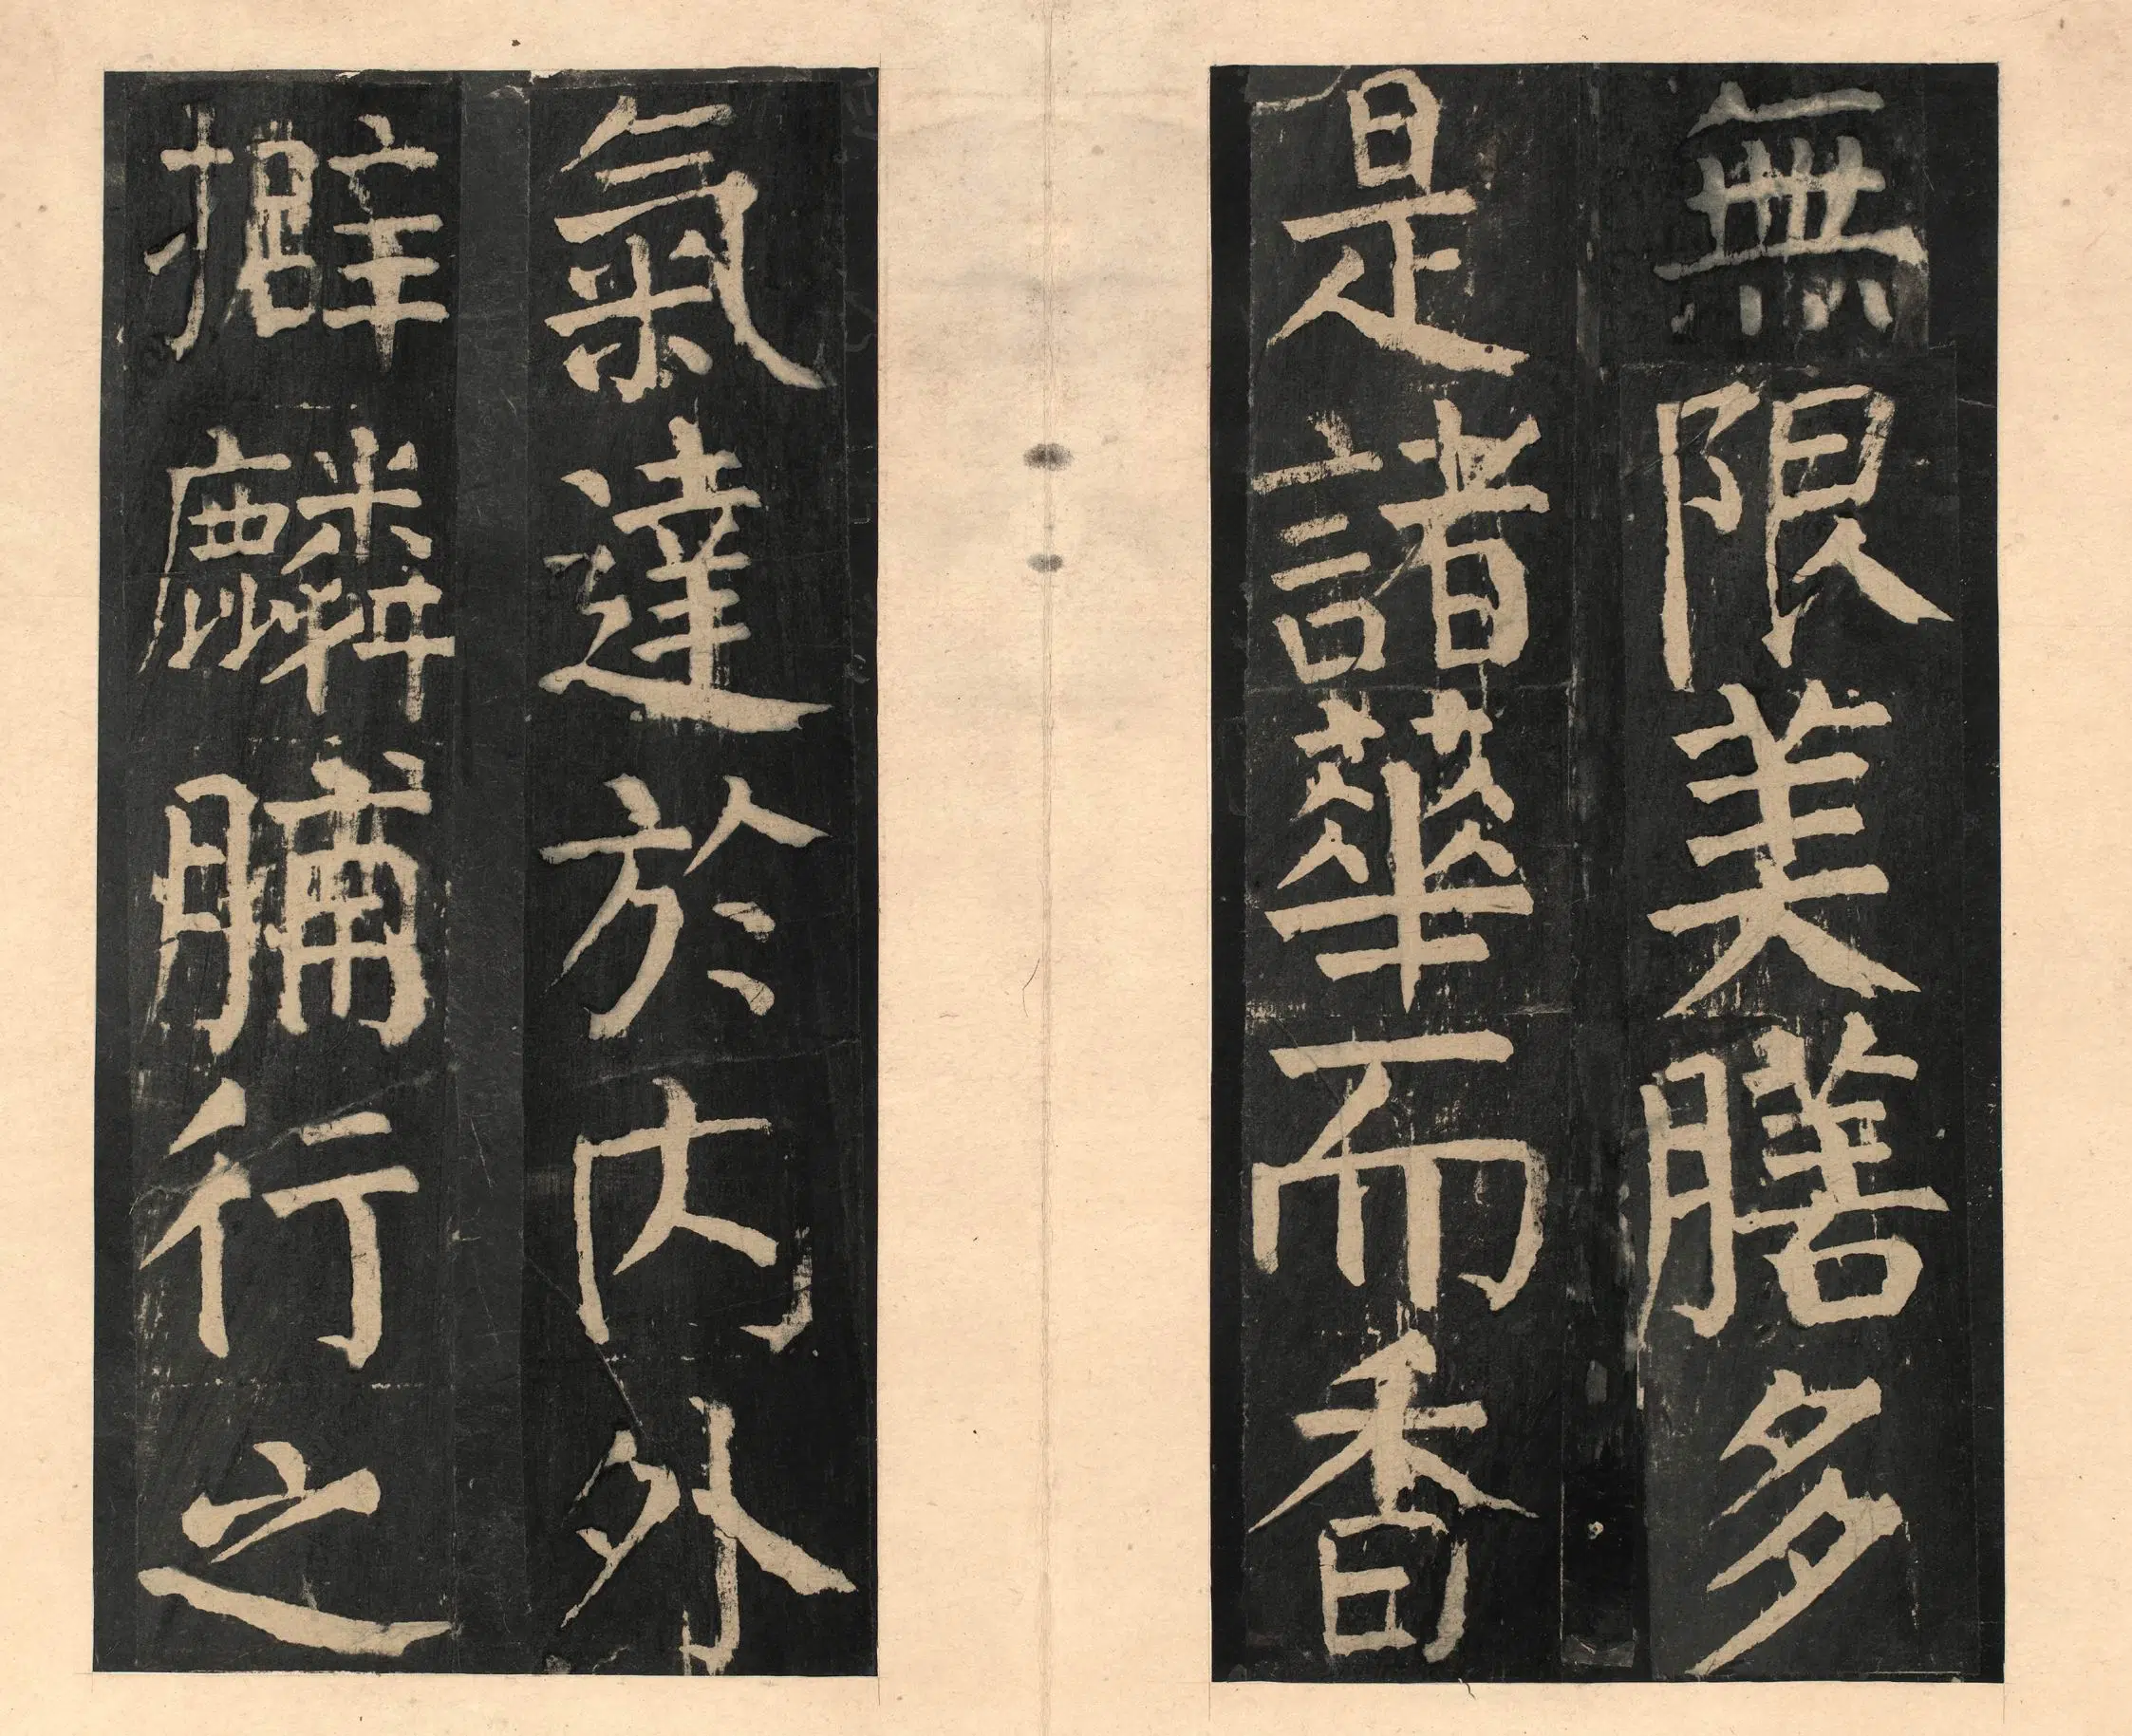 無限美膳多
是諸華而香
氣達於內外
擗麟脯行之